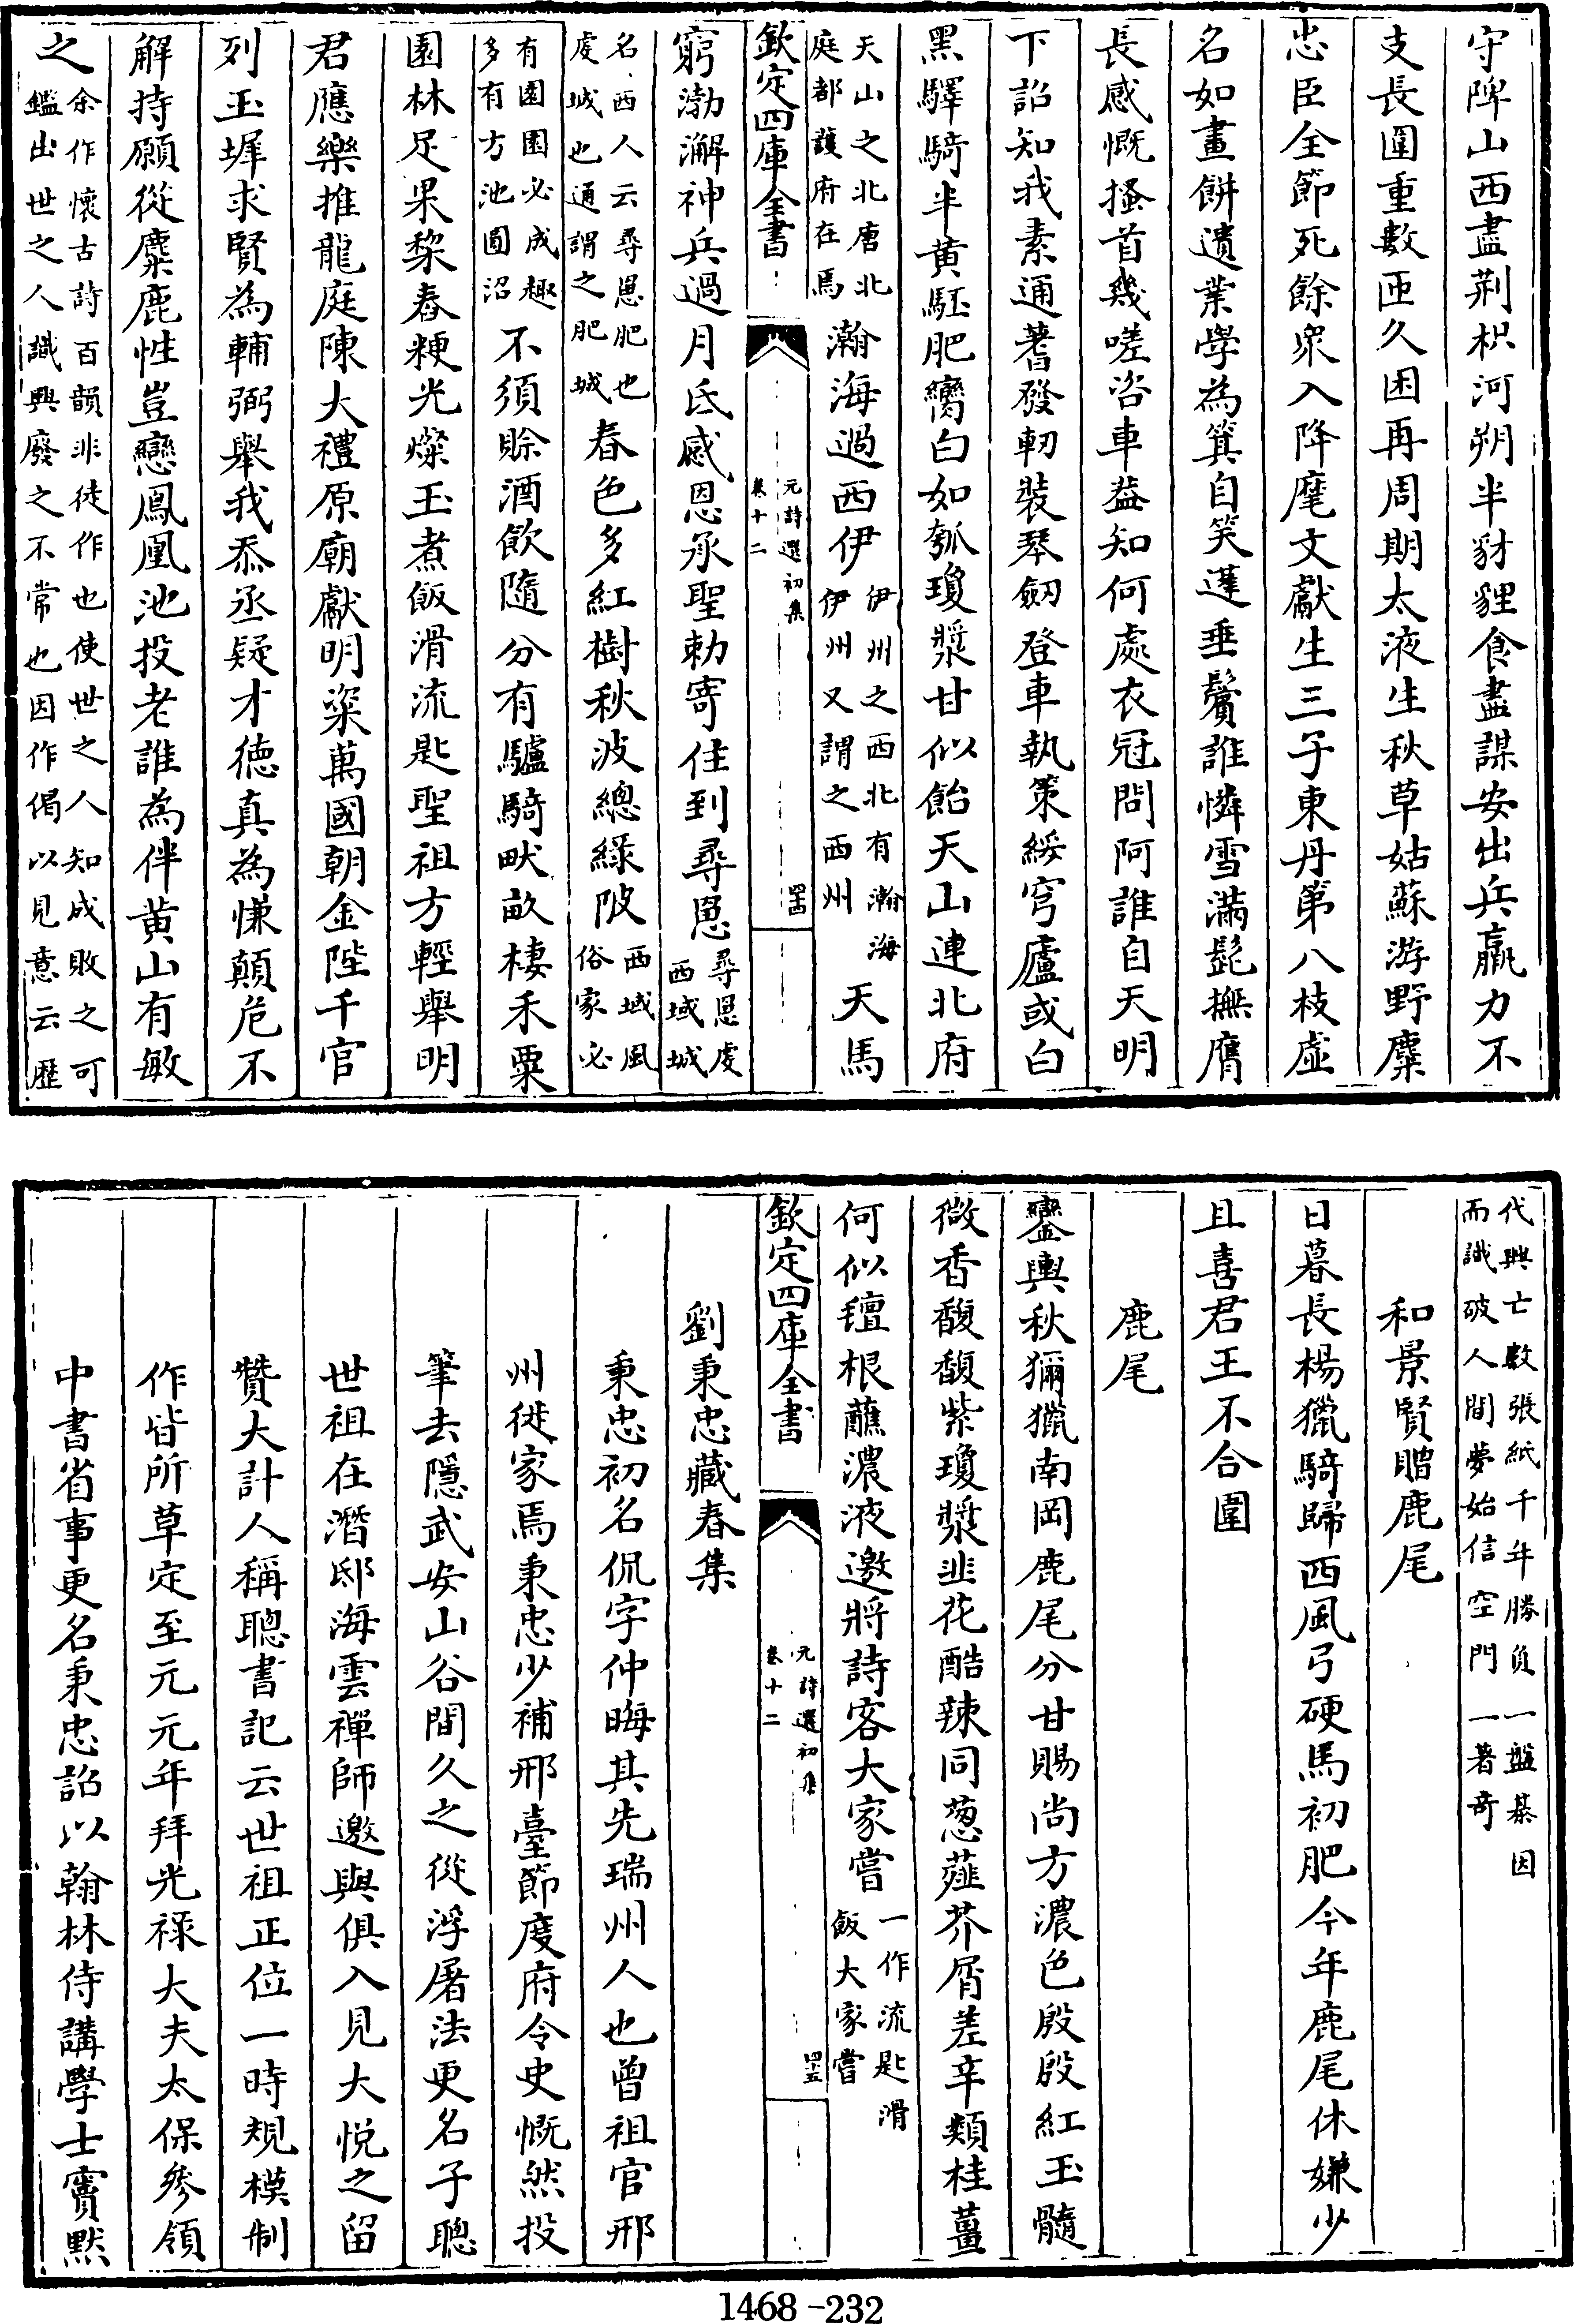 守陴山西盡荆枳河朔半豺貍食盡謀安出兵羸力不
支長圍重數匝久困再周期太液生秋草姑蘇游野麋
忠臣全節死餘衆入降麾文獻生三子東丹第八枝虛
名如畫餅遺業學為箕自笑蓬垂鬢誰憐雪滿髭撫膺
長感慨搔首幾嗟咨車益知何處衣冠問阿誰自天明
下詔知我素通蓍發軔裝琴劒登車執策綏穹廬或白
黑驛騎半黄駓肥臠白如瓠瓊漿甘似飴天山連北府
天山之北唐北
庭都護府在焉
瀚海過西伊
伊州之西北有瀚海
伊州又謂之西州
天馬
欽定四庫全書
元詩選初集
卷十二
四十四
窮渤澥神兵過月氐感恩承聖勅寄住到尋罳
尋罳虔
西域城
名西人云尋罳肥也
虔城也通謂之肥城
春色多紅樹秋波總綠陂
西域風
俗家必
有園園必成趣
多有方池圓沼
不須賒酒飲隨分有驢騎畎畝棲禾粟
園林足果棃春粳光燦玉煮飯滑流匙聖祖方輕舉明
君應樂推龍庭陳大禮原廟獻明粢萬國朝金陛千官
列玉墀求賢為輔弼舉我忝丞疑才德真為慊顛危不
解持願從麋鹿性豈戀鳳凰池投老誰為伴黄山有敏
之
余作懷古詩百韻非徒作也使世之人知成敗之可
鑑出世之人識興廢之不常也因作偈以見意云歷
代興亡數張紙千年勝負一盤棊因
而識破人間夢始信空門一著奇
和景賢贈鹿尾
日暮長楊獵騎歸西風弓硬馬初肥今年鹿尾休嫌少
且喜君王不合圍
鹿尾
鑾輿秋獮獵南岡鹿尾分甘賜尚方濃色殷殷紅玉髓
微香馥馥紫瓊漿韭花酷辣同葱薤芥屑差辛類桂薑
何似氊根蘸濃液邀將詩客大家嘗
一作流匙滑
飯大家嘗
欽定四庫全書
元詩選初集
卷十二
四十五
劉秉忠藏春集
秉忠初名侃字仲晦其先瑞州人也曾祖官邢
州徙家焉秉忠少補邢臺節度府令史慨然投
筆去隱武安山谷間久之從浮屠法更名子聰
世祖在潛邸海雲禪師邀與俱入見大悅之留
贊大計人稱聰書記云世祖正位一時規模制
作皆所草定至元元年拜光祿大夫太保參領
中書省事更名秉忠詔以翰林侍講學士竇默
1468-232